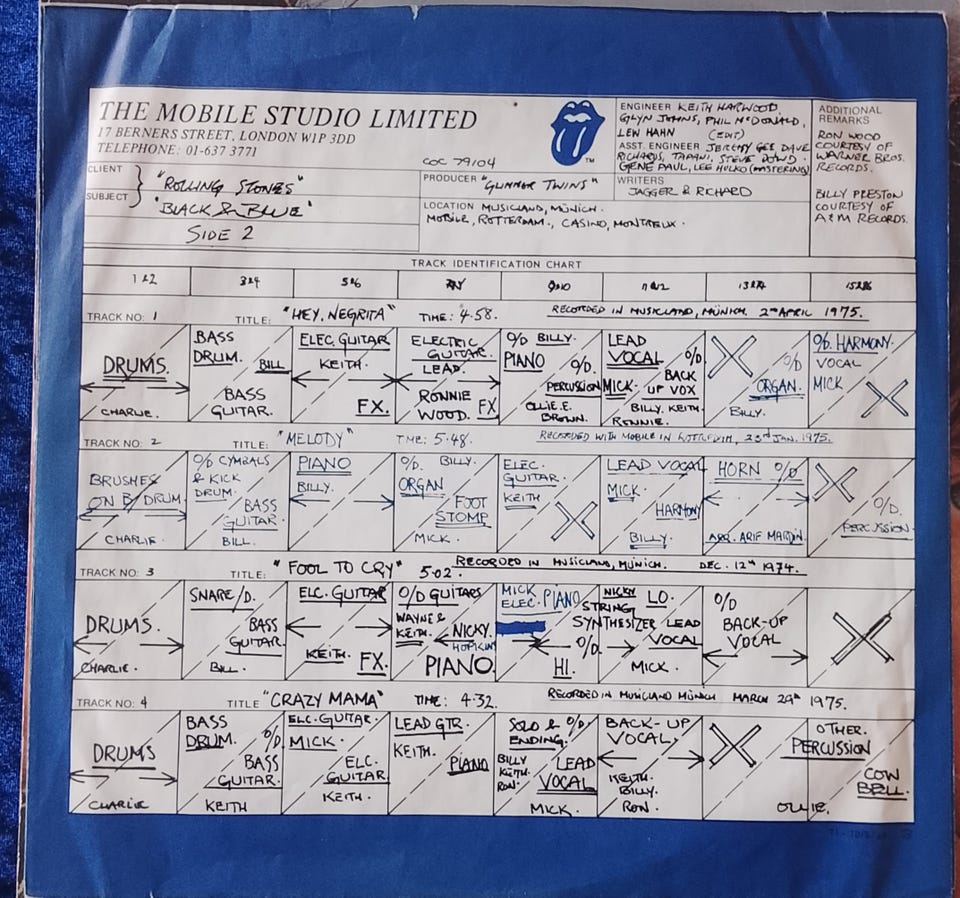 THE MOBILE STUDIO LIMITED
17 BERNERS STREET, LONDON W1P 3DD
TELEPHONE: 01-637 3771
COC 79104
TM
CLIENT
SUBJECT
"ROLLING STONES"
"BLACK & BLUE"
SIDE 2
PRODUCER "GLIMMER TWINS"
LOCATION MUSICLAND, MUNICH.
MOBILE, ROTTERDAM., CASINO, MONTREUX.
ENGINEER KEITH HARWOOD,
GLYN JOHNS, PHIL McDONALD,
LEW HAHN (EDIT)
ASST. ENGINEER JEREMY GEE DAVE
RICHARDS, TAPANI, STEVE DOWD
GENE PAUL, LEE HULKO (MASTERING)
WRITERS
JAGGER & RICHARD
ADDITIONAL
REMARKS
RON WOOD
COURTESY OF
WARNER BROS.
RECORDS.
BILLY PRESTON
COURTESY OF
A&M RECORDS.
TRACK IDENTIFICATION CHART
1 & 2 3 & 4 5 & 6 7 & 8 9 & 10 11 & 12 13 & 14 15 & 16
TRACK NO: 1 TITLE: "HEY, NEGRITA" TIME: 4.58. RECORDED IN MUSICLAND, MUNICH. 2nd APRIL 1975.
DRUMS.
CHARLIE.
BASS
DRUM.
BILL
BASS
GUITAR.
ELEC. GUITAR
KEITH.
FX.
ELECTRIC
GUITAR.
LEAD.
RONNIE
WOOD. FX
O/D BILLY.
PIANO
O/D.
PERCUSSION
OLLIE. E.
BROWN.
LEAD
VOCAL
MICK.
O/D
BACK
UP VOX
BILLY. KEITH.
RONNIE.
O/D
ORGAN.
BILLY.
O/D. HARMONY.
VOCAL
MICK
TRACK NO: 2 TITLE: "MELODY" TIME: 5.48. RECORDED WITH MOBILE IN ROTTERDAM, 23rd JAN. 1975.
BRUSHES
ON B/DRUM
CHARLIE.
O/D CYMBALS
& KICK
DRUM.
BASS
GUITAR.
BILL.
PIANO
BILLY.
O/D. BILLY.
ORGAN
FOOT
STOMP
MICK.
ELEC.
GUITAR.
KEITH
LEAD VOCAL
MICK.
HARMONY
BILLY.
HORN O/D
ARR. ARIF MARDIN.
O/D.
PERCUSSION.
TRACK NO: 3 TITLE: "FOOL TO CRY" 5.02. RECORDED IN MUSICLAND, MUNICH. DEC. 12th 1974.
DRUMS.
CHARLIE.
SNARE/D.
BASS
GUITAR.
BILL.
ELC. GUITAR
KEITH.
FX.
O/D GUITARS
WAYNE &
KEITH.
NICKY.
HOPKINS
PIANO.
MICK
ELEC. PIANO
HI.
NICKY LO.
STRING
SYNTHESIZER
O/D
LEAD
VOCAL
MICK.
O/D
BACK-UP
VOCAL
TRACK NO: 4 TITLE "CRAZY MAMA" TIME: 4.32. RECORDED IN MUSICLAND MUNICH MARCH 29th 1975.
DRUMS
CHARLIE
BASS
DRUM.
O/D
BASS
GUITAR.
KEITH
ELC. GUITAR.
MICK.
ELC.
GUITAR
KEITH.
LEAD GTR.
KEITH.
PIANO
SOLO & O/D
ENDING.
BILLY
KEITH.
RON.
LEAD
VOCAL
MICK.
BACK-UP
VOCAL.
KEITH.
BILLY.
RON.
OTHER.
PERCUSSION
OLLIE.
COW
BELL.